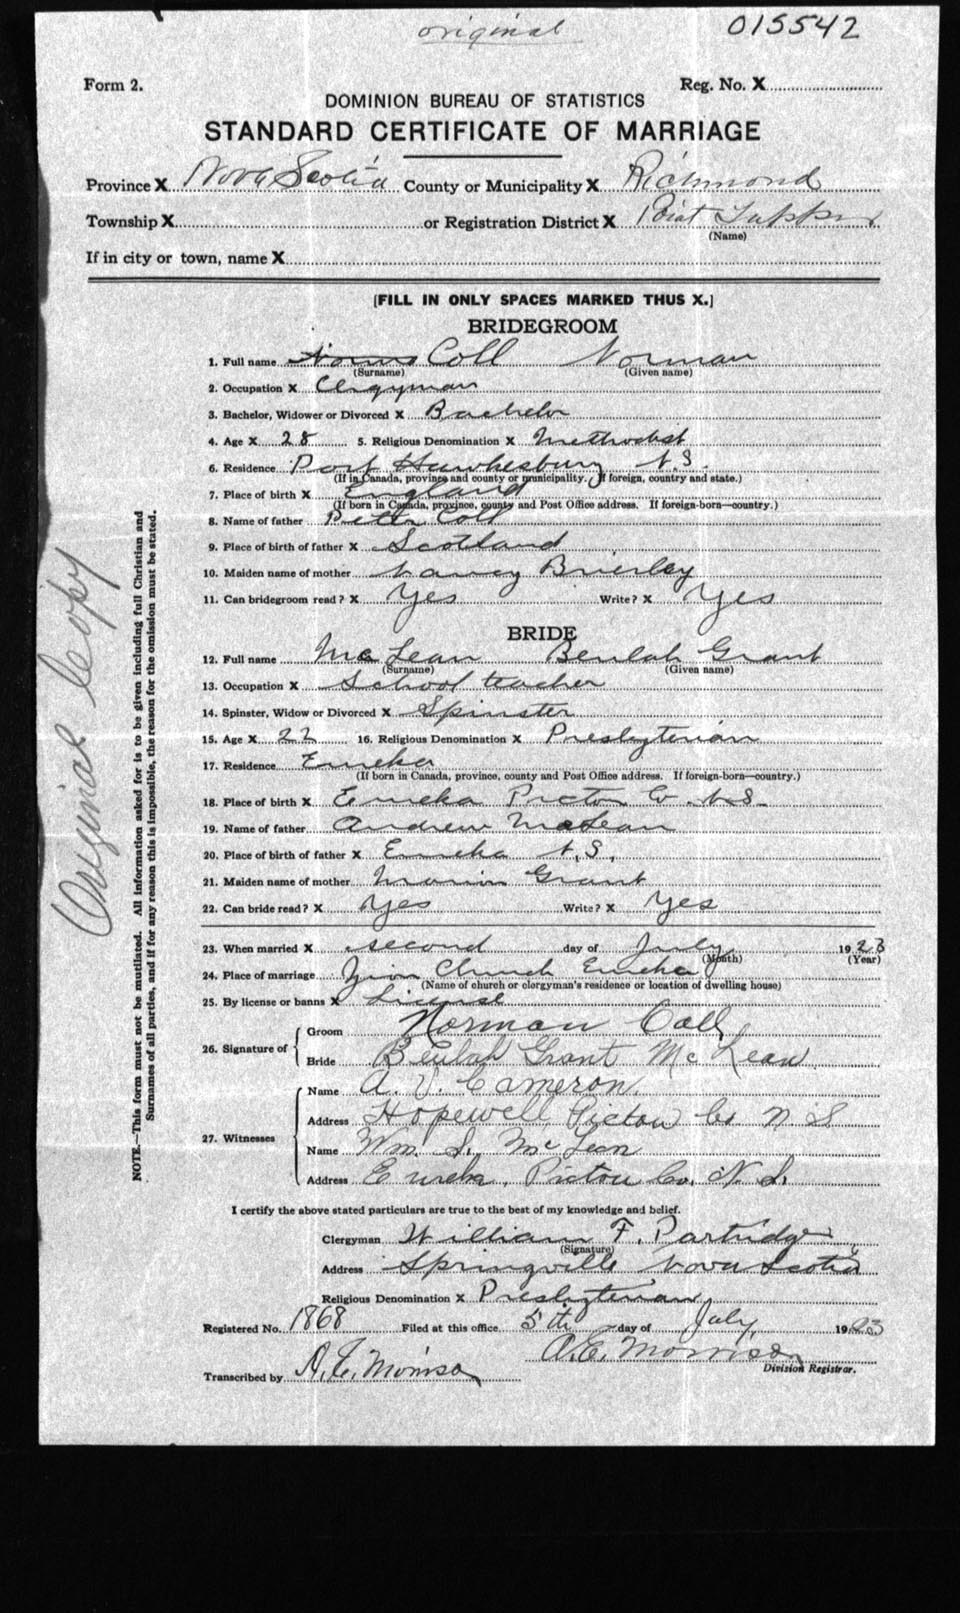 original 015542
Form 2. Reg. No. X
DOMINION BUREAU OF STATISTICS
STANDARD CERTIFICATE OF MARRIAGE
Province X Nova Scotia County or Municipality X Richmond
Township X or Registration District X Point Tupper
(Name)
If in city or town, name X
[FILL IN ONLY SPACES MARKED THUS X.]
BRIDEGROOM
1. Full name Coll Norman
(Surname) (Given name)
2. Occupation X Clergyman
3. Bachelor, Widower or Divorced X Bachelor
4. Age X 28 5. Religious Denomination X Methodist
6. Residence Port Hawkesbury N.S.
(If in Canada, province and county or municipality. If foreign, country and state.)
7. Place of birth X England
(If born in Canada, province, county and Post Office address. If foreign-born—country.)
8. Name of father Peter Coll
9. Place of birth of father X Scotland
10. Maiden name of mother Nancy Brierley
11. Can bridegroom read? X Yes Write? X Yes
BRIDE
12. Full name McLean Beulah Grant
(Surname) (Given name)
13. Occupation X School teacher
14. Spinster, Widow or Divorced X Spinster
15. Age X 22 16. Religious Denomination X Presbyterian
17. Residence Eureka
(If born in Canada, province, county and Post Office address. If foreign-born—country.)
18. Place of birth X Eureka Pictou Co. N.S.
19. Name of father Andrew McLean
20. Place of birth of father X Eureka N.S.
21. Maiden name of mother Grant
22. Can bride read? X Yes Write? X Yes
23. When married X second day of July 1923
(Month) (Year)
24. Place of marriage Zion Church Eureka
(Name of church or clergyman's residence or location of dwelling house)
25. By license or banns X License
26. Signature of Groom Norman Coll
Bride Beulah Grant McLean
27. Witnesses Name A. V. Cameron
Address Hopewell, Pictou Co N.S
Name Wm. S. McLean
Address Eureka, Pictou Co. N.S.
I certify the above stated particulars are true to the best of my knowledge and belief.
Clergyman William F. Partridge
(Signature)
Address Springville Nova Scotia
Religious Denomination X Presbyterian
Registered No. 1868 Filed at this office 5th day of July 1923
A.E. Morrison
Division Registrar.
Transcribed by A.E. Morrison
Original Copy
NOTE.—This form must not be mutilated. All information asked for is to be given including full Christian and
Surnames of all parties, and if for any reason this is impossible, the reason for the omission must be stated.